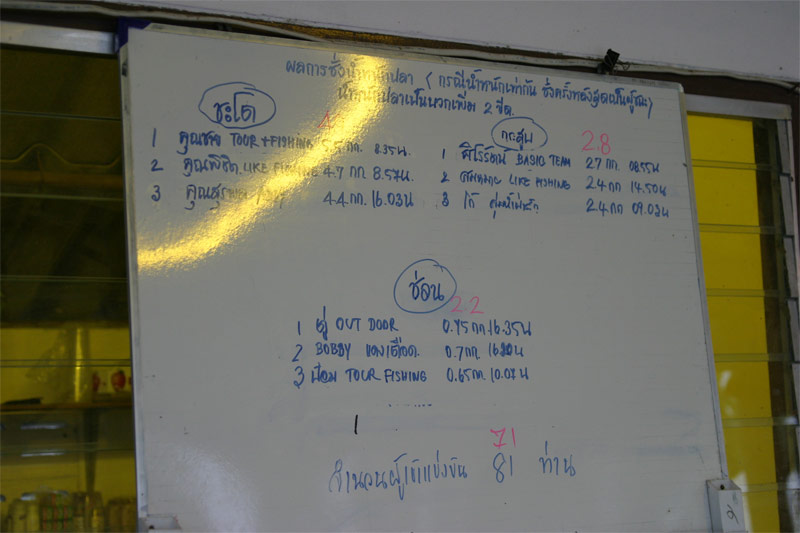 ผลการชั่งน้ำหนักปลา (กรณีน้ำหนักเท่ากัน ชั่งครั้งหลังสุดเป็นผู้ชนะ)
น้ำหนักปลาเป็นบวกเพิ่ม 2 ขีด
ชะโด
4
1 คุณชาย TOUR + FISHING 5.5 กก. 8.35 น.
2 คุณพิชิต LIKE FISHING 4.7 กก 8.57 น.
3 4.4 กก. 16.03 น
กระสูบ
2.8
1 BASIC TEAM 2.7 กก. 08.55 น
2 LIKE FISHING 2.4 กก 14.50 น
3 2.4 กก 09.03 น
ช่อน
2.2
1 OUT DOOR 0.75 กก. 16.35 น
2 BOBBY 0.7 กก. น
3 TOUR FISHING 0.65 กก. 10.07 น
1
71
จำนวนผู้เข้าแข่งขัน 81 ท่าน